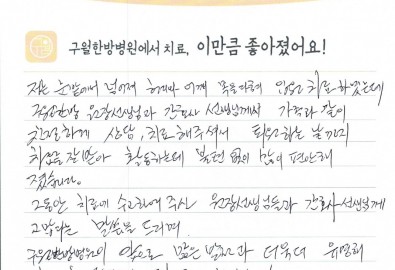 구월한방병원에서 치료, 이만큼 좋아졌어요!
저는 눈앞에서 넘어져 허리와 어깨 입원 치료 하였는데
구월한방 원장선생님과 간호사 선생님께서 가족과 같이
친절하게 상담, 치료 해주셔서 퇴원하는 날까지
치료를 잘 받아 활동하는데 불편 없이 많이 편안해
졌습니다.
그동안 치료에 수고하여 주신 원장선생님들과 간호사 선생님께
고맙다는 말씀을 드리며,
구월한방병원이 앞으로 많은 발전과 더욱더 유명해